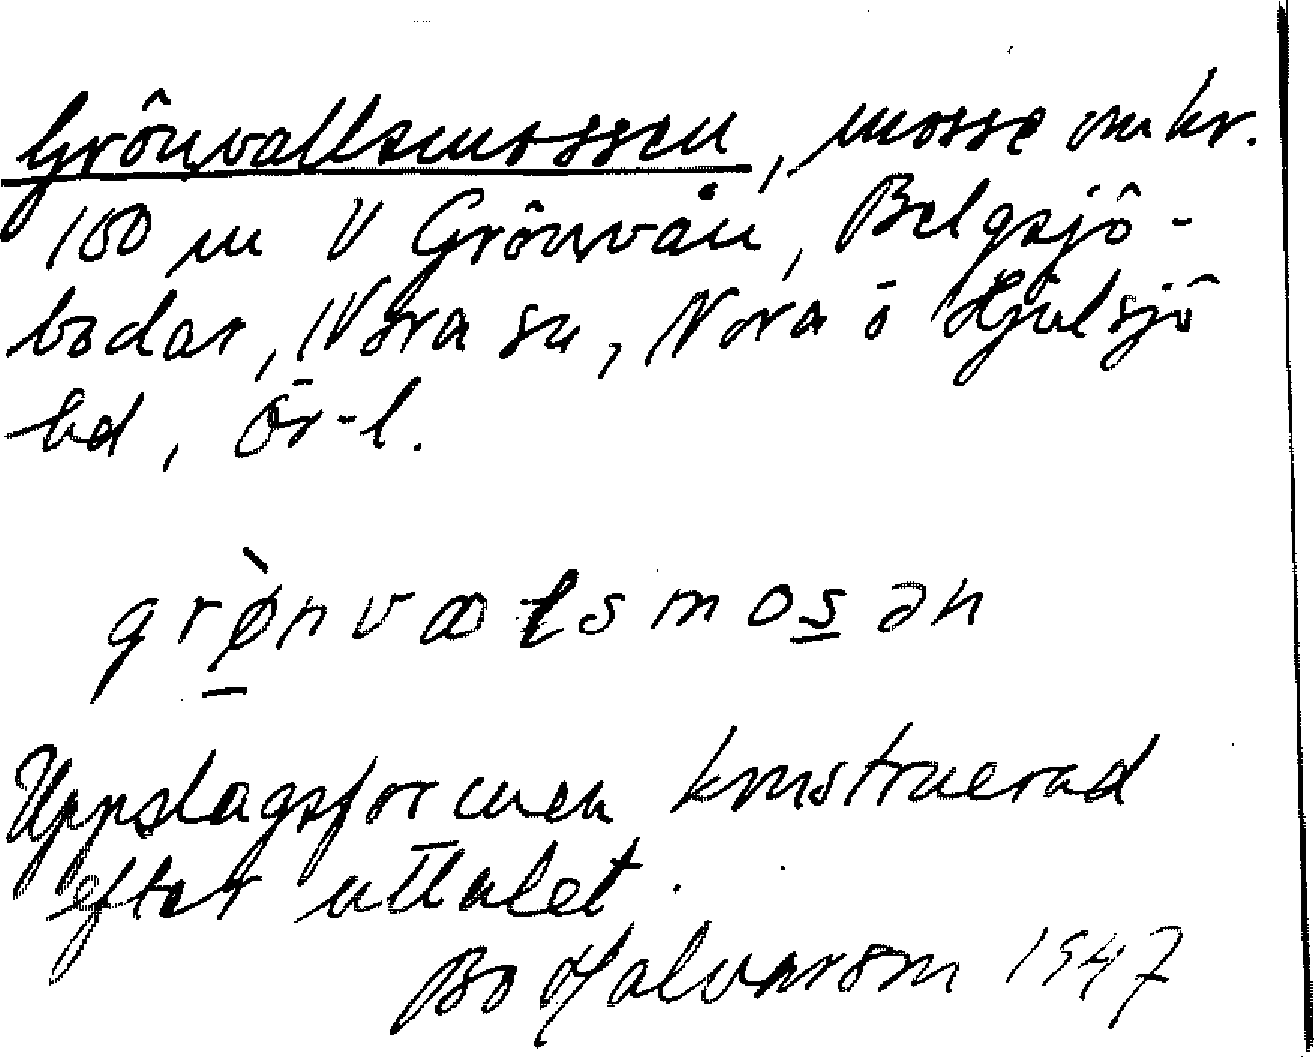 Grönvallsmossen, mosse omkr.
150 m V Grönvån, Bälgsjö-
bodar, Nora sn, Nora o Hjulsjö
bd, Ör-l.
grø̀nvalsmosən
Uppslagsformen konstruerad
efter uttalet.
Bo Halvarson 1947